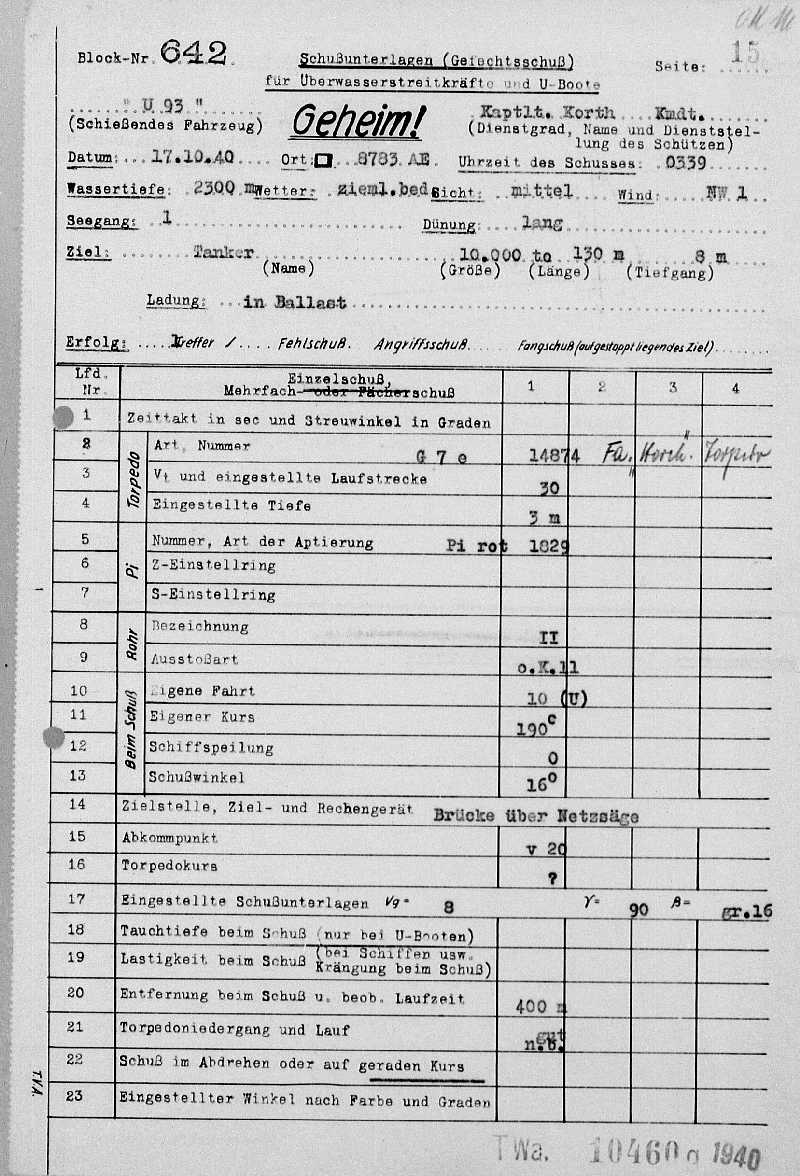 15
Block-Nr. 642 Schußunterlagen (Gefechtsschuß) Seite:
für Überwasserstreitkräfte und U-Boote
"U 93" Geheim! Kaptlt. Korth Kmdt.
(Schießendes Fahrzeug) (Dienstgrad, Name und Dienststel-
lung des Schützen)
Datum: 17.10.40 Ort: 8783 AE Uhrzeit des Schusses: 0339
Wassertiefe: 2300 m Wetter: zieml.bed. Sicht: mittel Wind: NW 1
Seegang: 1 Dünung: lang
Ziel: Tanker 10.000 to 130 m 8 m
(Name) (Größe) (Länge) (Tiefgang)
Ladung: in Ballast
Erfolg: 1 Treffer / Fehlschuß. Angriffsschuß. Fangschuß (auf gestoppt liegendes Ziel)
Lfd. Nr. Einzelschuß, Mehrfach- oder Fächerschuß 1 2 3 4
1 Zeittakt in sec und Streuwinkel in Graden
Torpedo
2 Art, Nummer G 7 e 14874 Fa. "Horch" Torpedo
3 Vt und eingestellte Laufstrecke 30
4 Eingestellte Tiefe 3 m
Pi
5 Nummer, Art der Aptierung Pi rot 1829
6 Z-Einstellring
7 S-Einstellring
Rohr
8 Bezeichnung II
9 Ausstoßart o.K.11
Beim Schuß
10 Eigene Fahrt 10 (U)
11 Eigener Kurs 190°
12 Schiffspeilung 0
13 Schußwinkel 16°
14 Zielstelle, Ziel- und Rechengerät Brücke über Netzsäge
15 Abkommpunkt v 20
16 Torpedokurs ?
17 Eingestellte Schußunterlagen Vg= 8 γ= 90 β= gr.16
18 Tauchtiefe beim Schuß (nur bei U-Booten)
19 Lastigkeit beim Schuß (bei Schiffen usw. Krängung beim Schuß)
20 Entfernung beim Schuß u. beob. Laufzeit 400 m
21 Torpedoniedergang und Lauf gut n.b.
22 Schuß im Abdrehen oder auf geraden Kurs
23 Eingestellter Winkel nach Farbe und Graden
T.V.A.
TWa. 10460 g 1940